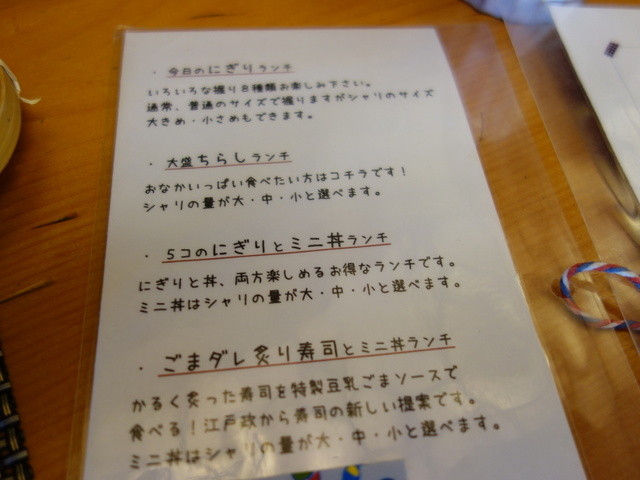 ・今日のにぎりランチ
いろいろな握り8種類お楽しみ下さい。
通常、普通のサイズで握りますがシャリのサイズ
大きめ・小さめもできます。
・大盛ちらしランチ
おなかいっぱい食べたい方はコチラです！
シャリの量が大・中・小と選べます。
・5コのにぎりとミニ丼ランチ
にぎりと丼、両方楽しめるお得なランチです。
ミニ丼はシャリの量が大・中・小と選べます。
・ごまダレ炙り寿司とミニ丼ランチ
かるく炙った寿司を特製豆乳ごまソースで
食べる！江戸政から寿司の新しい提案です。
ミニ丼はシャリの量が大・中・小と選べます。